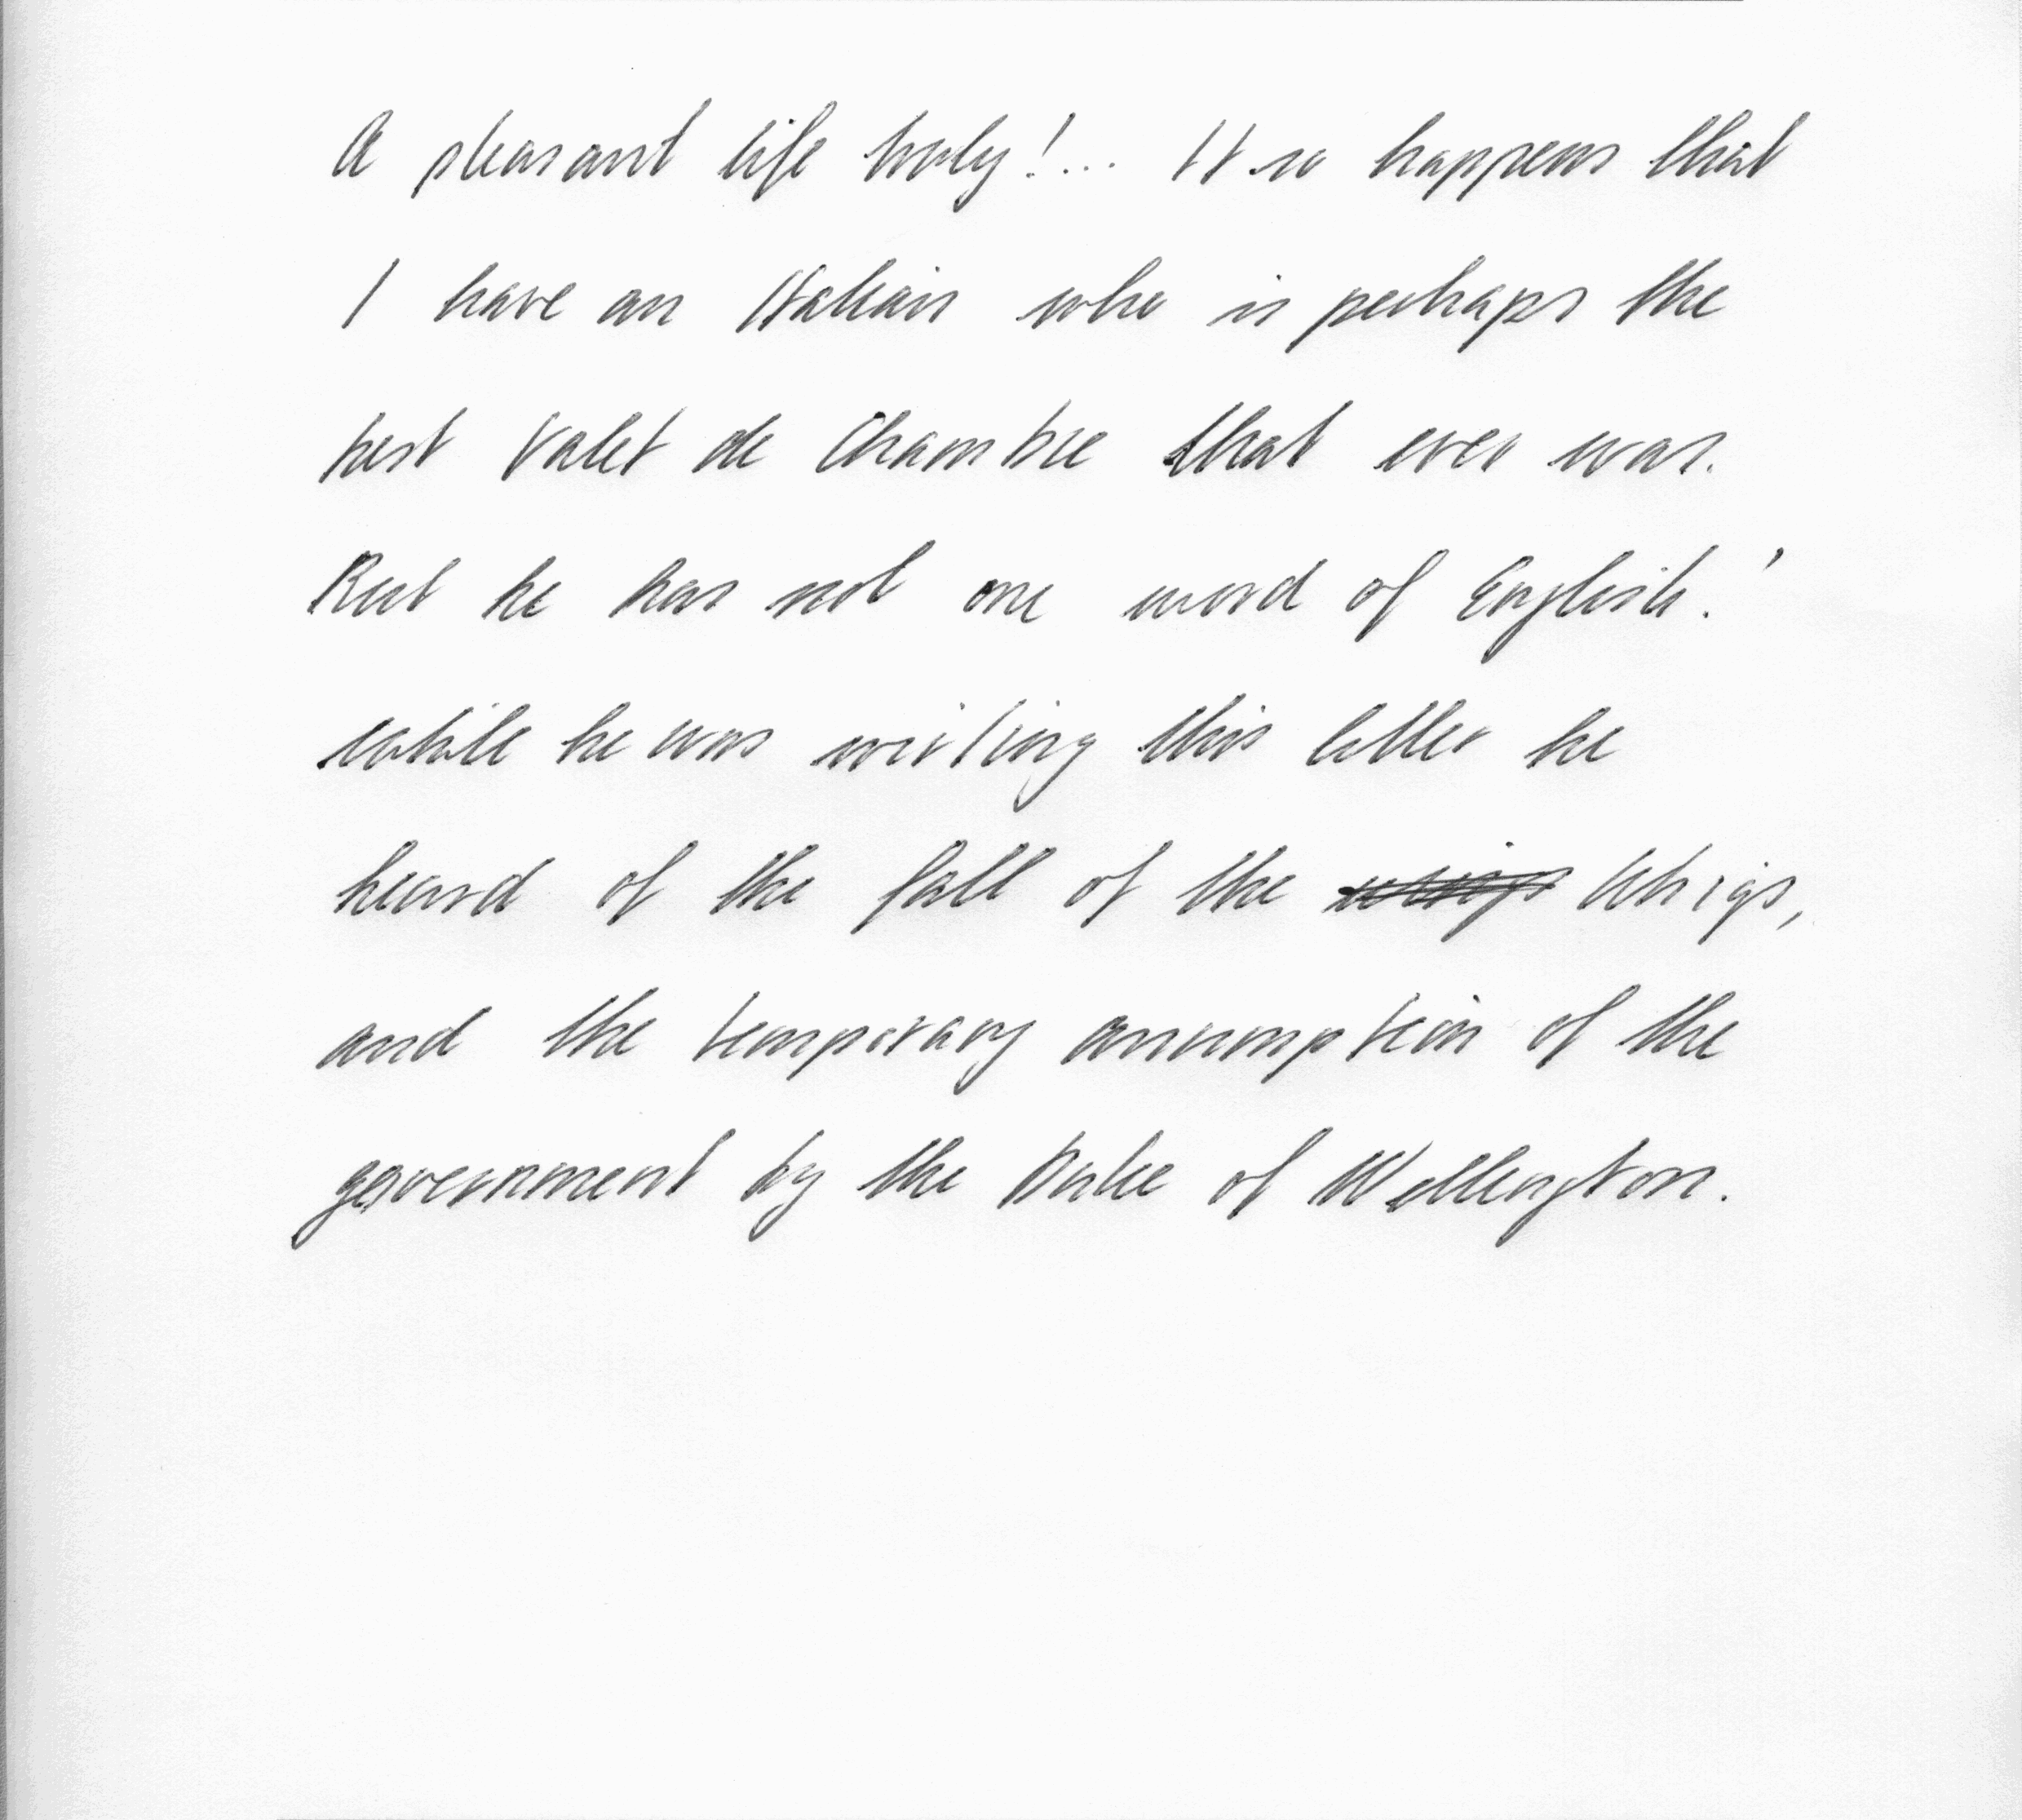 A pleasant life truly!... It so happens that
I have an Italian who is perhaps the
best Valet de Chambre that ever was.
But he has not one word of English.'
while he was writing this letter he
heard of the fall of the Whigs,
and the temporary assumption of the
government by the Duke of Wellington.